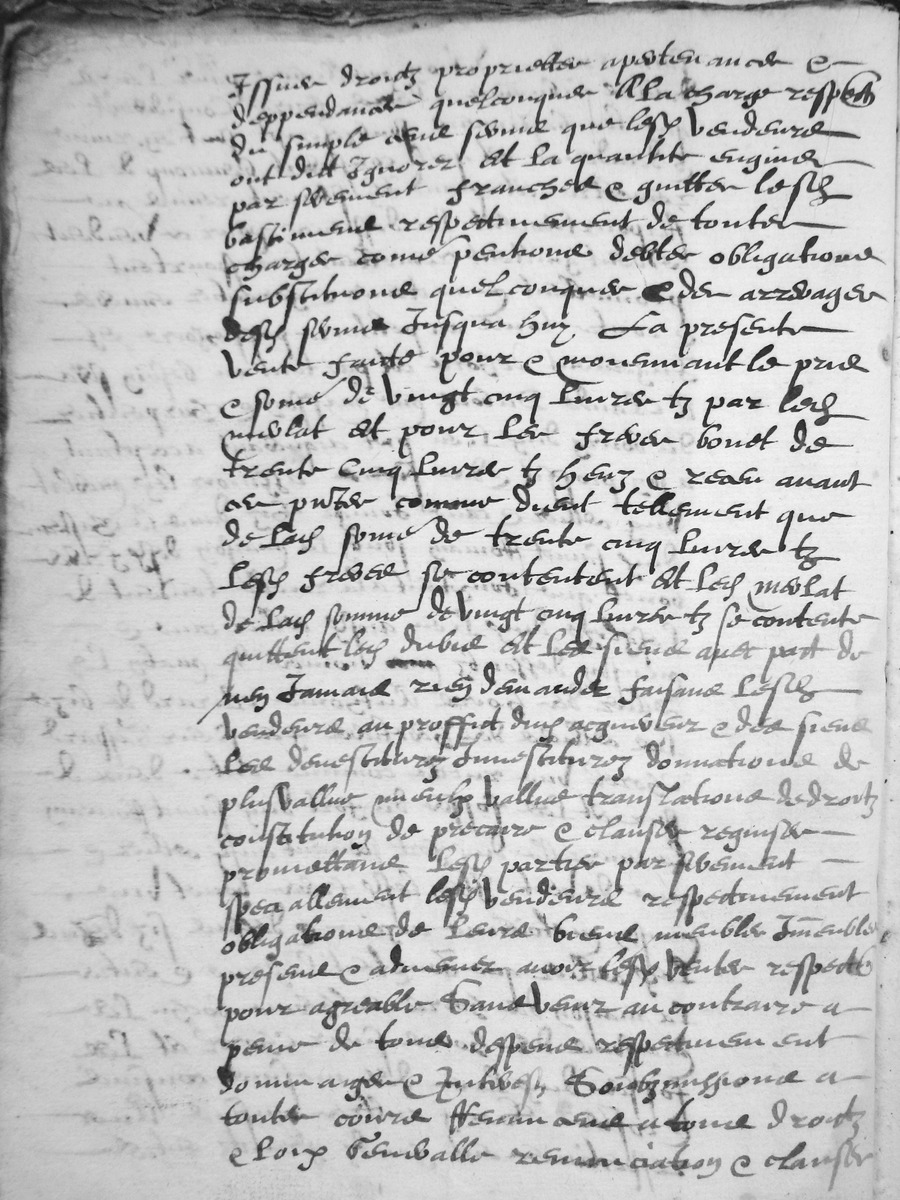 Issues droictz proprietes apertenances &
deppendances quelconques A la charge respect
du simple cens servis que lesd vendeurs
ont dit Ignorer et la quantite
par serement franches & quittes lesd
bastimens respectivement de toutes
charges come pentions debtes obligations
substitutions quelconques & des arreages
desd servis Jusqua huy La presente
vente faite pour & moiennant le pris
& some de vingt cinq livres tz par led
merlat et pour les freres bonet de
trente cinq livres tz heuz & receu avant
ces pntes comme dient tellement que
de lad some de trente cinq livres tz
lesd freres se contentent et led merlat
de lad somme de vingt cinq livres tz se contente
quittent led dubie et les siens avec pact de
nen Jamais rien demander faisans lesd
vendeurs au proffict dud acquereur & des siens
les devestitures Investitures donnations de
plus vallue mieulx vallue translations de droitz
constitution de precaire & clauses requises
promettans lesd parties par serement
speciallement lesd vendeurs respectivement
obligations de leurs biens meubles Imeubles
presens & advenir avoir lesd ventes respect
pour agreable Sans venir au contraire a
peine de tous despens respectivement
dommaiges & Intherestz Soubzmissions a
toutes cours Renonceans a tous droitz
& loix Genralle renunciation & clauses